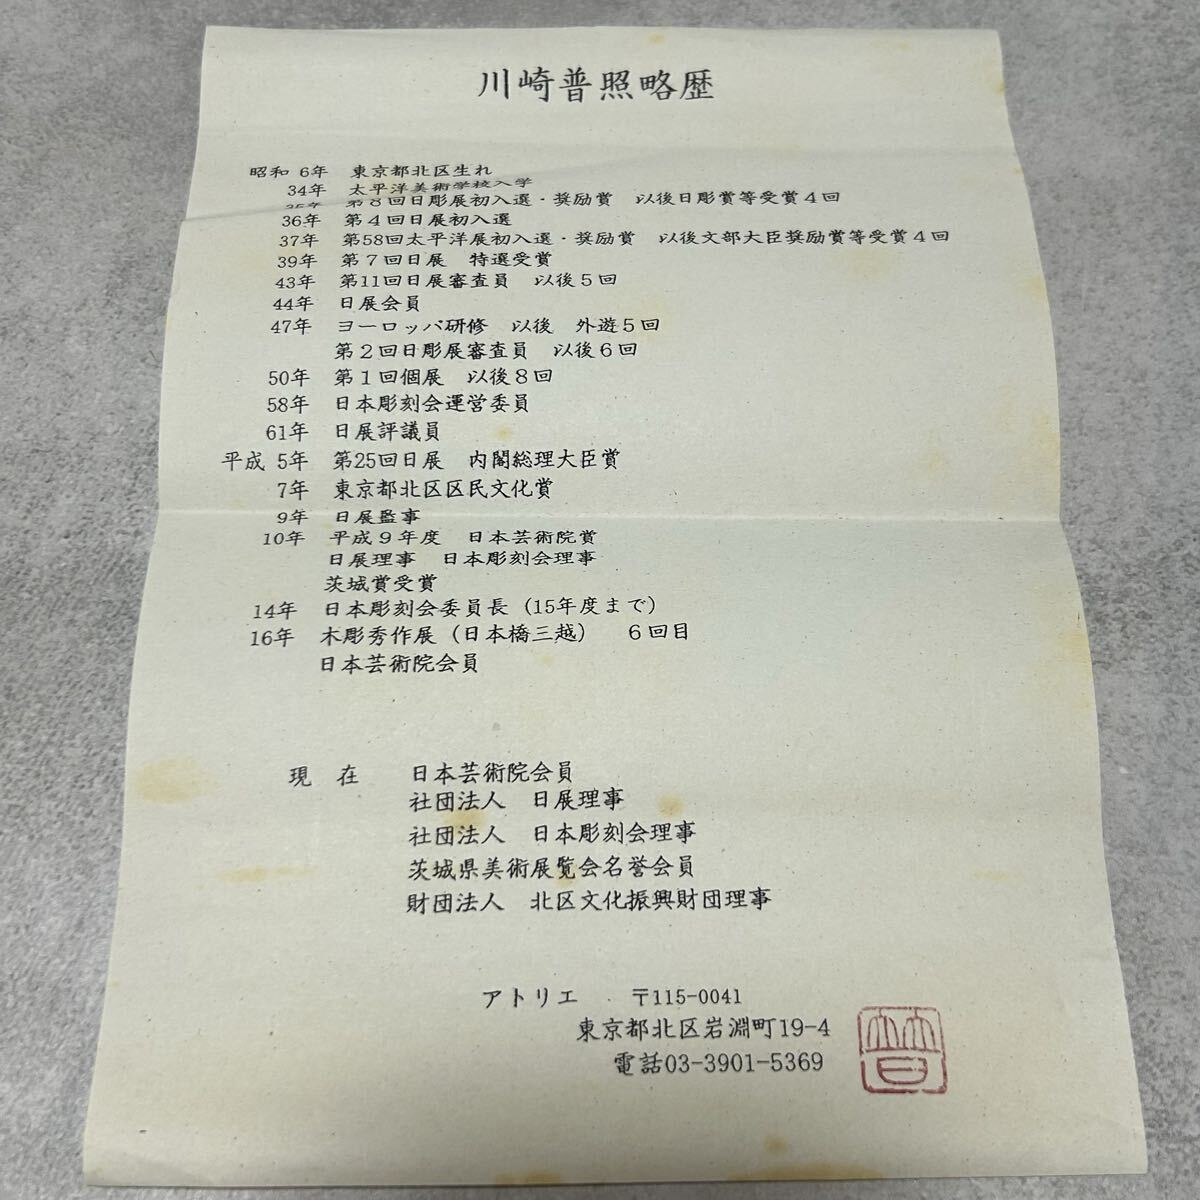 川崎普照略歴
昭和 6年 東京都北区生れ
34年 太平洋美術学校入学
35年 第8回日彫展初入選・奨励賞 以後日彫賞等受賞4回
36年 第4回日展初入選
37年 第58回太平洋展初入選・奨励賞 以後文部大臣奨励賞等受賞4回
39年 第7回日展 特選受賞
43年 第11回日展審査員 以後5回
44年 日展会員
47年 ヨーロッパ研修 以後 外遊5回
第2回日彫展審査員 以後6回
50年 第1回個展 以後8回
58年 日本彫刻会運営委員
61年 日展評議員
平成 5年 第25回日展 内閣総理大臣賞
7年 東京都北区区民文化賞
9年 日展監事
10年 平成9年度 日本芸術院賞
日展理事 日本彫刻会理事
茨城賞受賞
14年 日本彫刻会委員長（15年度まで）
16年 木彫秀作展（日本橋三越） 6回目
日本芸術院会員
現 在 日本芸術院会員
社団法人 日展理事
社団法人 日本彫刻会理事
茨城県美術展覧会名誉会員
財団法人 北区文化振興財団理事
アトリエ 〒115-0041
東京都北区岩淵町19-4
電話03-3901-5369
普